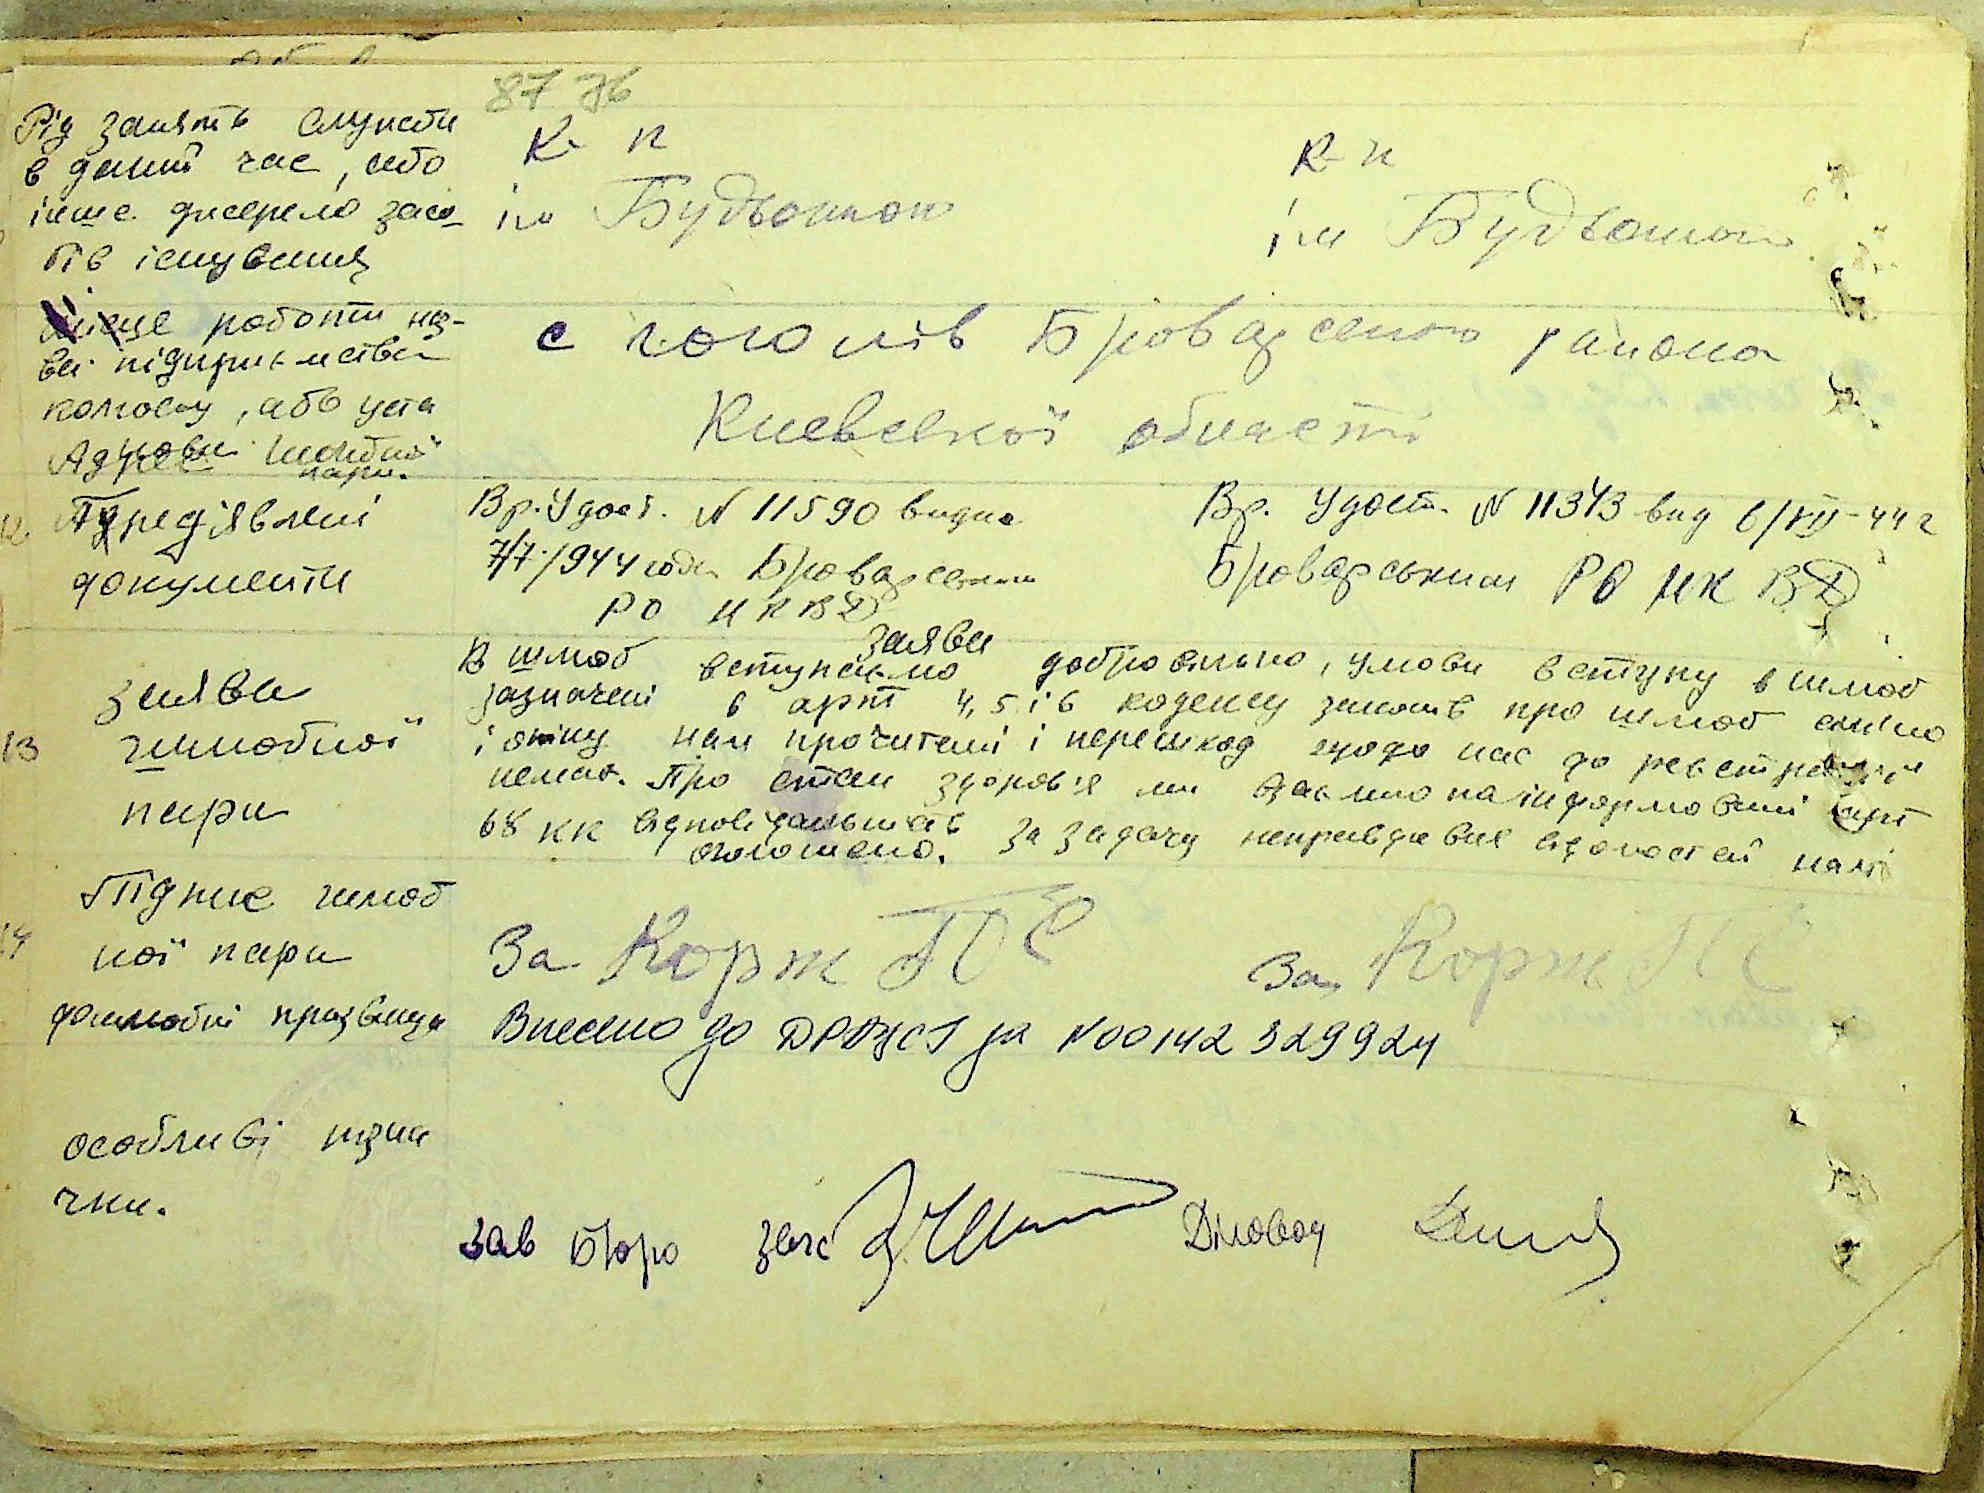 87 76
Рід занять служби
в даний час, або
інше джерело засо-
бів існування
К- п
ім Будьонного
К-п
ім Будьонного
Місце роботи наз-
ва підприємства
колгоспу, або уста
нови
Адрес шлюбної
пари.
с Гоголів Броварського района
Киевської області
12 Пред'явлені
документи
Вр. Удост. N 11590 видно
7/V-1944 года Броварським
РО НКВД
Вр. Удост. N 11343 вид 6/VII-44 г
Броварським РО НКВД
13 Заява
шлюбної
пари
заява
В шлюб вступаємо добровільно, умови вступу в шлюб
зазначені в арт 4, 5 і 6 кодексу законів про шлюб сімю
і опіку нам прочитані і перешкод щодо нас до реєстрації
немає. Про стан здоров'я ми взаємно наінформовані
68 КК відповідальність за задачу неправдивих відомостей нам
оголошено.
14 Підпис шлюб
ної пари
За Корж П Е
За Корж П Е
дошлюбні прізвища
Внесено до ДРАЦСГ за N00142329924
особливі позна
чки.
Зав бюро загс
Діловод